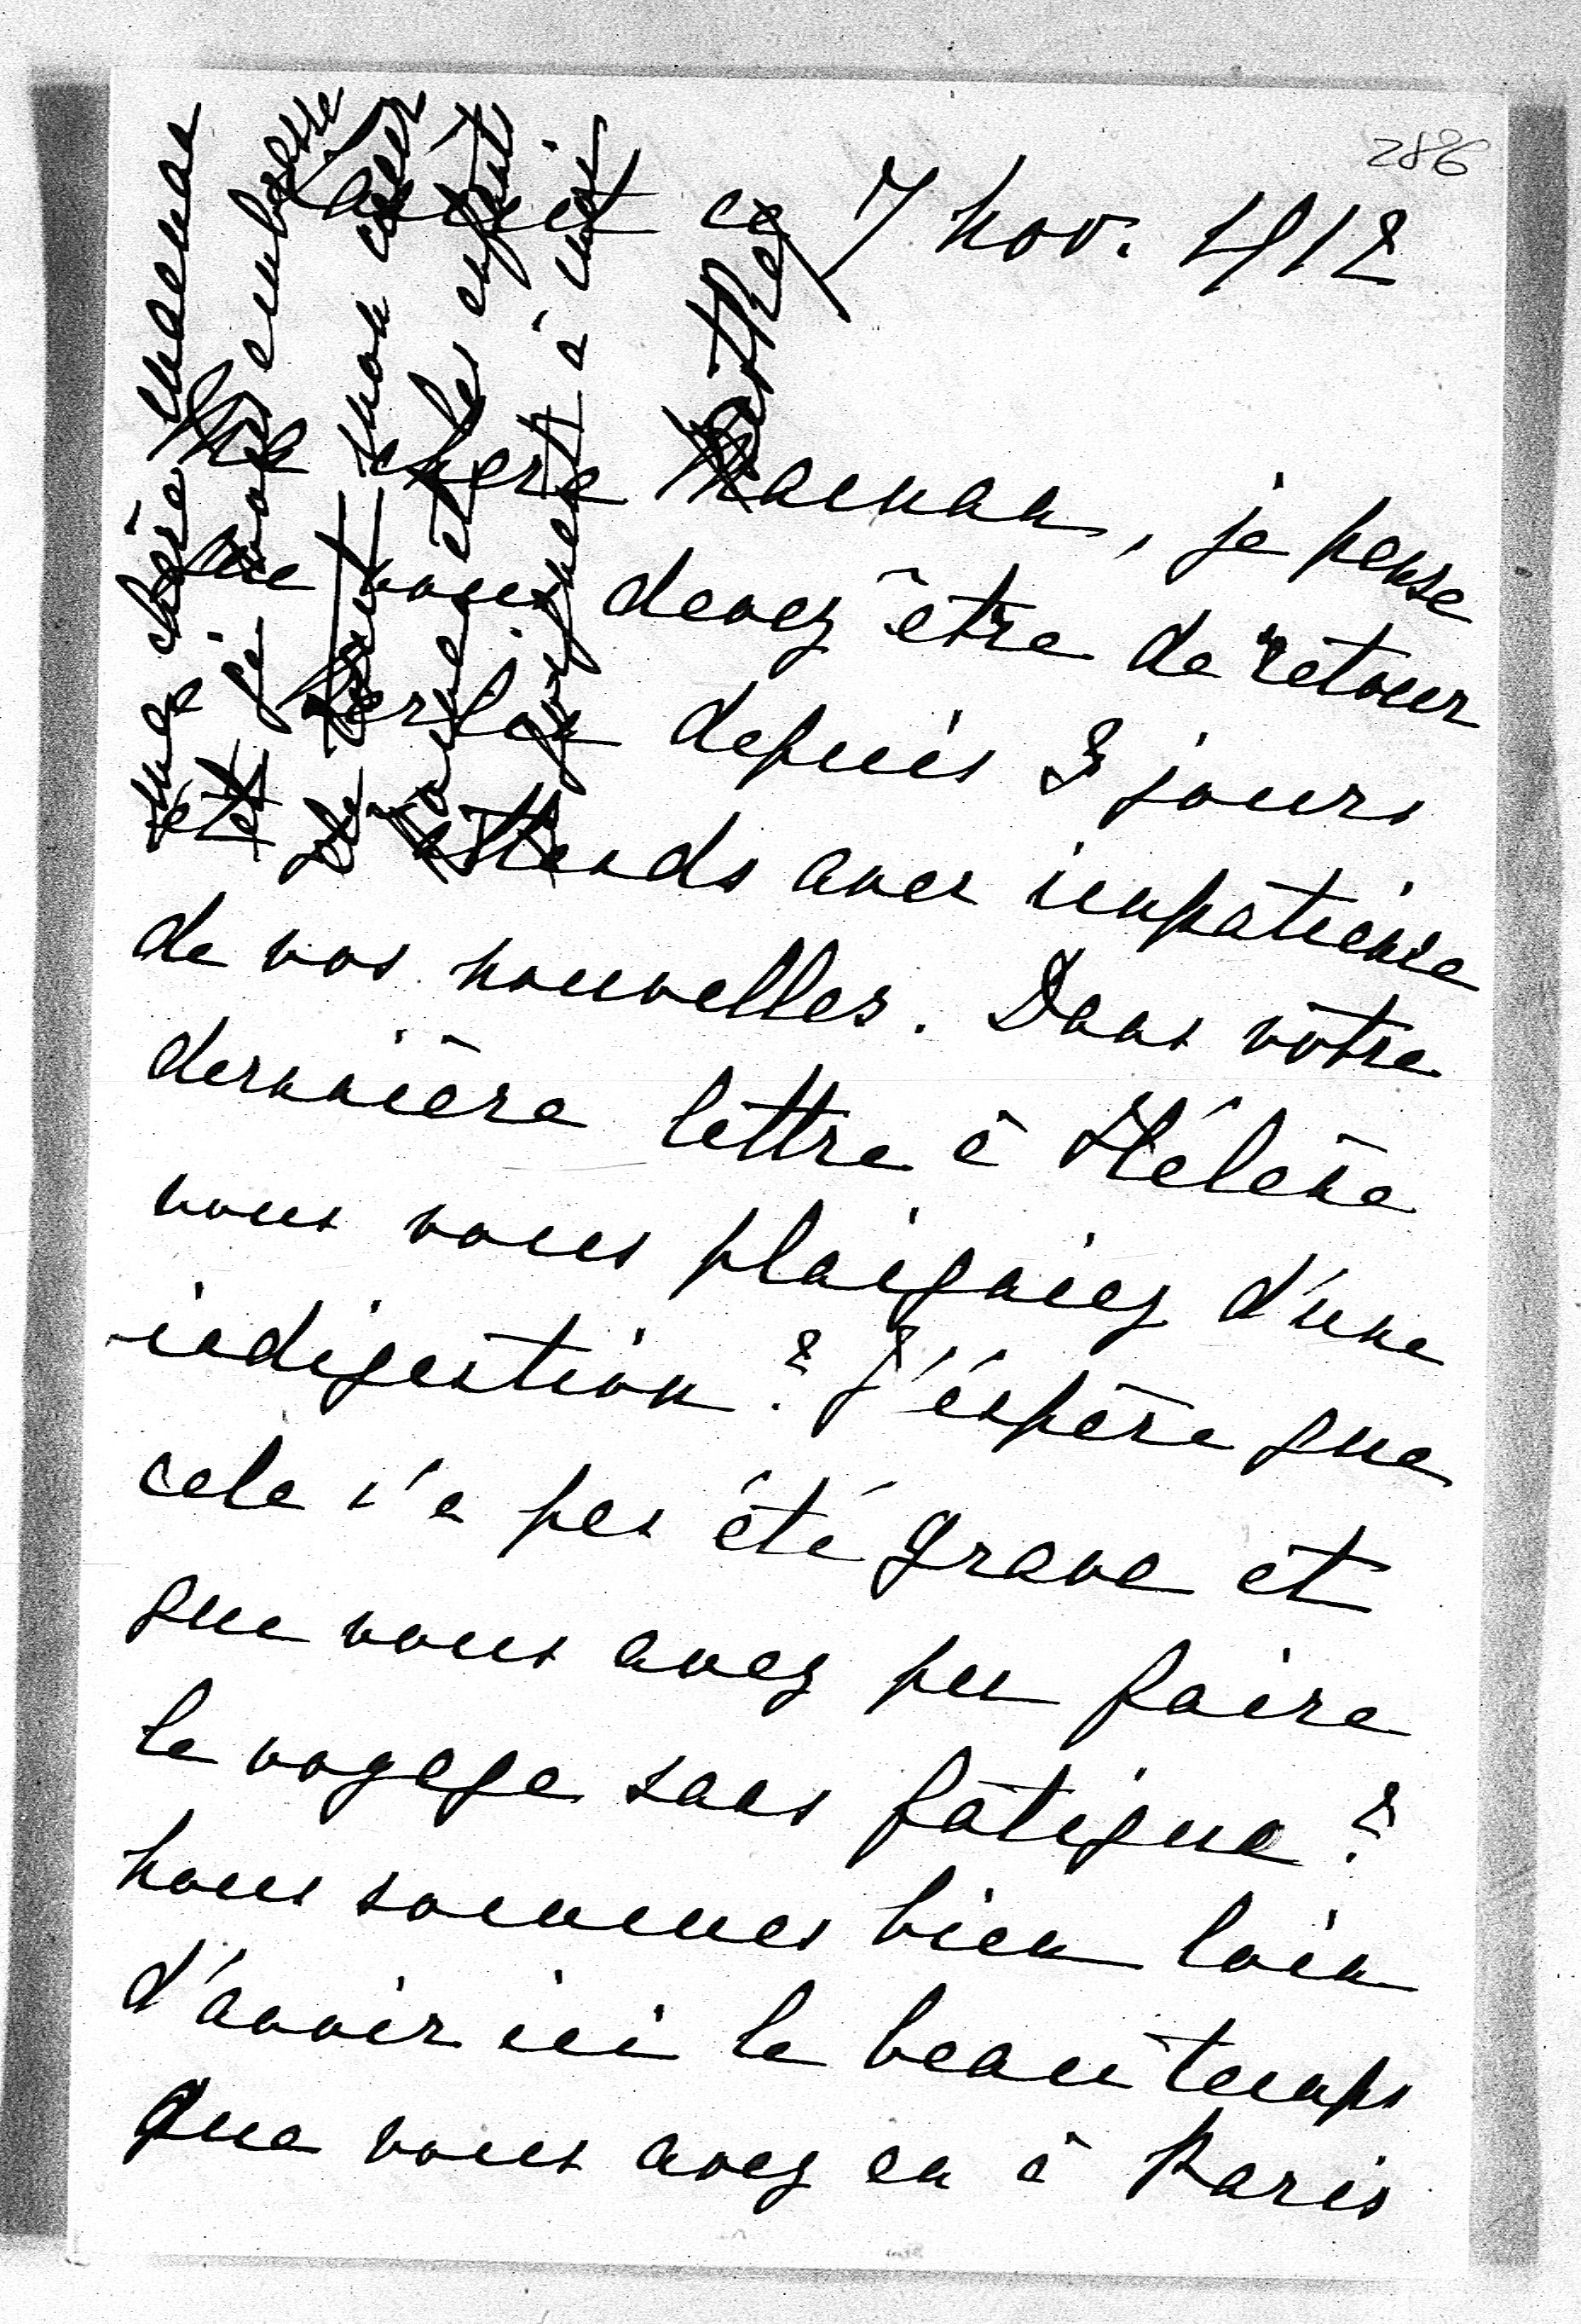 286
Lancut ce 7 Nov. 1912
Ma chère Maman, je pense
que vous devez être de retour
à Berlin depuis 3 jours
et j'attends avec impatience
de vos nouvelles. Dans votre
dernière lettre à Hélène
vous vous plaigniez d'une
indigestion? J'éspère que
cela n'a pas été grave et
que vous avez pu faire
le voyage sans fatigue?
Nous sommes bien loin
d'avoir ici le beau temps
que vous avez eu à Paris
ma chère maman
et je vous embrasse
de tout mon coeur
joignent à moi